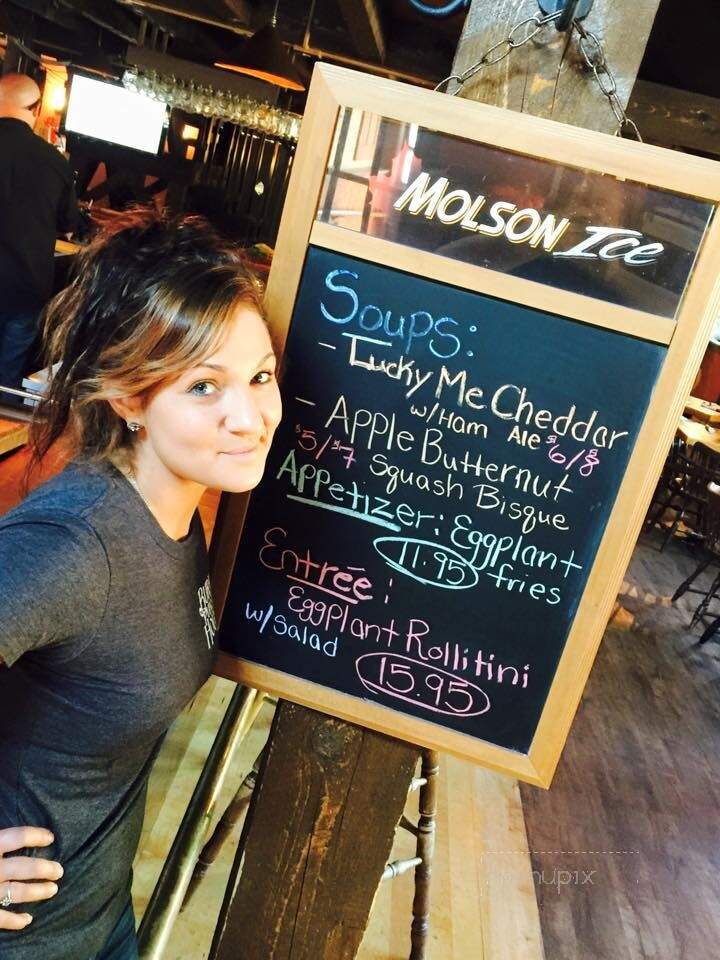 MOLSON Ice
Soups:
- Lucky Me Cheddar
w/Ham Ale $6/8
- Apple Butternut
$5/$7 Squash Bisque
Appetizer: Eggplant
11.95 fries
Entrée:
Eggplant Rollitini
w/Salad
15.95